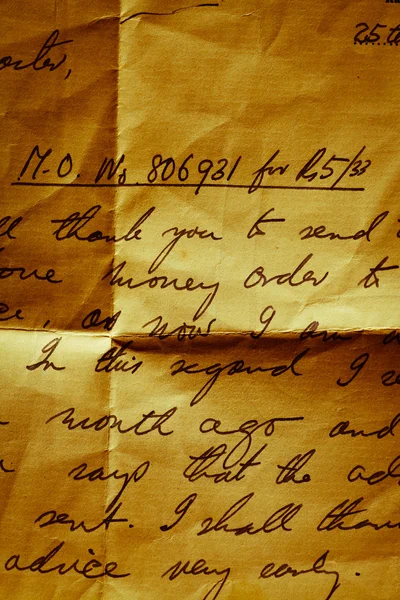 25 te
M.O. No 806931 for Rs5/33
ll thank you to send
ove money order to
ce, as now I am
In this regard I
month ago and
says that the ad
sent. I shall than
advice very early.